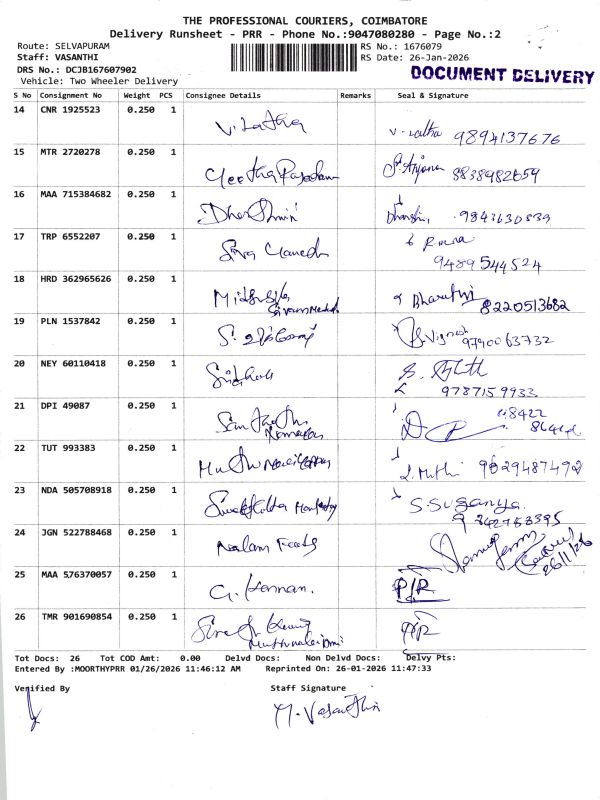 THE PROFESSIONAL COURIERS, COIMBATORE
Delivery Runsheet - PRR - Phone No.:9047080280 - Page No.:2
Route: SELVAPURAM RS No.: 1676079
Staff: VASANTHI RS Date: 26-Jan-2026
DRS No.: DCJB167607902
DOCUMENT DELIVERY
Vehicle: Two Wheeler Delivery
S No Consignment No Weight PCS Consignee Details Remarks Seal & Signature
14 CNR 1925523 0.250 1 V. Latha V. Latha 9894137676
15 MTR 2720278 0.250 1 Geetha 8838982659
16 MAA 715384682 0.250 1 9843630839
17 TRP 6552207 0.250 1 Siva Ganesh
9489544524
18 HRD 362965626 0.250 1 Bharathi 8220513682
19 PLN 1537842 0.250 1 Vignesh 9790063732
20 NEY 60110418 0.250 1
9787159933
21 DPI 49087 0.250 1
22 TUT 993383 0.250 1 Muthu 9629487492
23 NDA 505708918 0.250 1 S. Suganya
24 JGN 522788468 0.250 1 Nalam Foods
26/1/26
25 MAA 576370057 0.250 1 G. Kannan. P/R
26 TMR 901690854 0.250 1 P/R
Tot Docs: 26 Tot COD Amt: 0.00 Delvd Docs: Non Delvd Docs: Delvy Pts:
Entered By :MOORTHYPRR 01/26/2026 11:46:12 AM Reprinted On: 26-01-2026 11:47:33
Verified By Staff Signature
M. Vasanthi